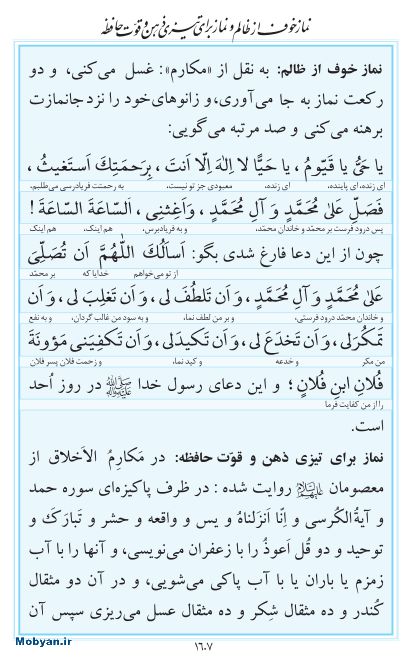 نماز خوف از ظالم و نماز برای تیزی ذهن و قوّت حافظه
نماز خوف از ظالم: به نقل از «مکارم»: غسل می‌کنی، و دو
رکعت نماز به جا می‌آوری، و زانوهای خود را نزد جانمازت
برهنه می‌کنی و صد مرتبه می‌گویی:
یا حَیُّ یا قَیّومُ ، یا حَیًّا لا اِلٰهَ اِلّا اَنتَ ، بِرَحمَتِكَ اَستَغیثُ ،
ای زنده، ای پاینده، ای زنده، معبودی جز تو نیست، به رحمتت فریادرسی می‌طلبم،
فَصَلِّ عَلیٰ مُحَمَّدٍ وَ آلِ مُحَمَّدٍ ، وَ اَغِثنی ، اَلسّاعَةَ السّاعَةَ !
پس درود فرست بر محمّد و خاندان محمّد، و به فریادم‌برس، هم اینک، هم اینک،
چون از این دعا فارغ شدی بگو: اَسأَلُكَ اللّٰهُمَّ اَن تُصَلِّیَ
از تو می‌خواهم خدایا که بر محمّد
عَلیٰ مُحَمَّدٍ وَ آلِ مُحَمَّدٍ ، وَ اَن تَلطُفَ لی ، وَ اَن تَغلِبَ لی ، وَ اَن
و خاندان محمّد درود فرستی، و بر من لطف نما، و به سود من غالب گردان، و به نفع
تَمکُرَ لی ، وَ اَن تَخدَعَ لی ، وَ اَن تَکیدَ لی ، وَ اَن تَکفِیَنی مَؤونَةَ
من مکر و خدعه و کید نما، و زحمت فلان پسر فلان
فُلانِ ابنِ فُلانٍ ؛ و این دعای رسول خدا ﷺ در روز اُحد
را از من کفایت فرما
است.
نماز برای تیزی ذهن و قوّت حافظه: در مَکارِمُ الاَخلاق از
معصومان علیهم‌السلام روایت شده : در ظرف پاکیزه‌ای سوره حمد
و آیةُ الکُرسی و اِنّا اَنزَلناهُ و یس و واقعه و حشر و تَبارَكَ و
توحید و دو قُل اَعوذُ را با زعفران می‌نویسی، و آنها را با آب
زمزم یا باران یا با آب پاکی می‌شویی، و در آن دو مثقال
کُندر و ده مثقال شِکر و ده مثقال عسل می‌ریزی سپس آن
Mobyan.ir
۱۶۰۷